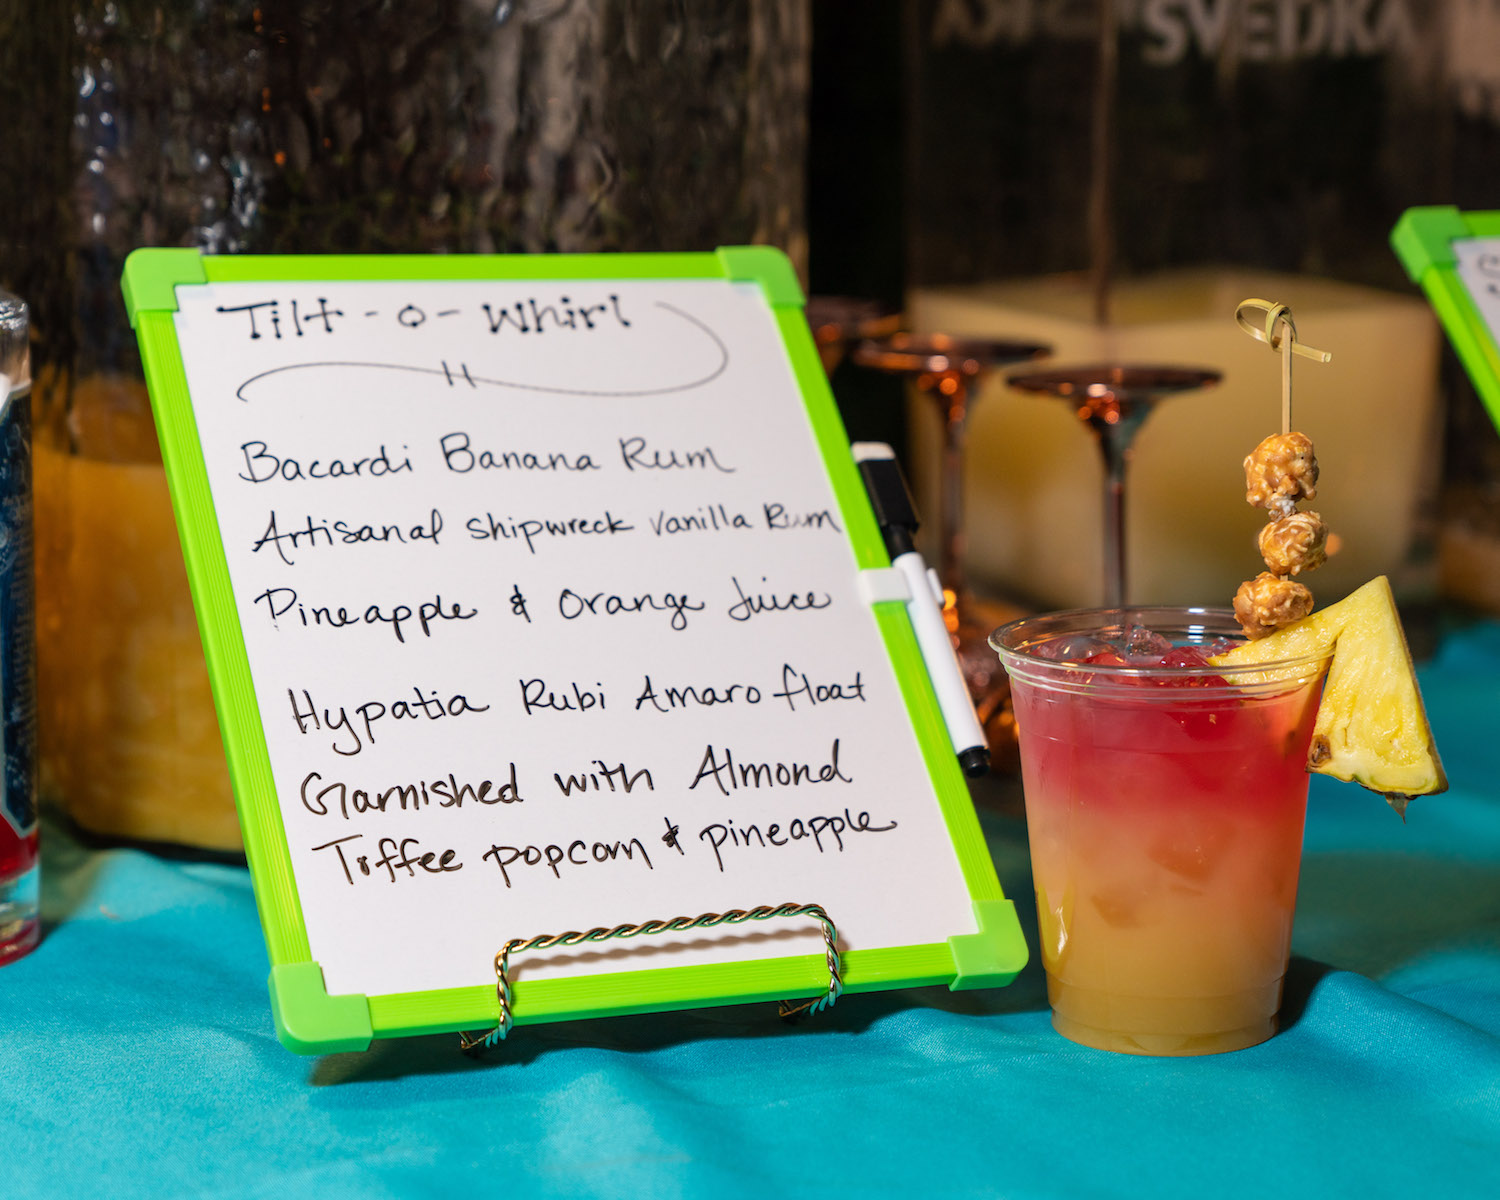 SVEDKA
Tilt-o-Whirl
Bacardi Banana Rum
Artisanal shipwreck vanilla Rum
Pineapple & Orange Juice
Hypatia Rubi Amaro float
Garnished with Almond
Toffee popcorn & pineapple